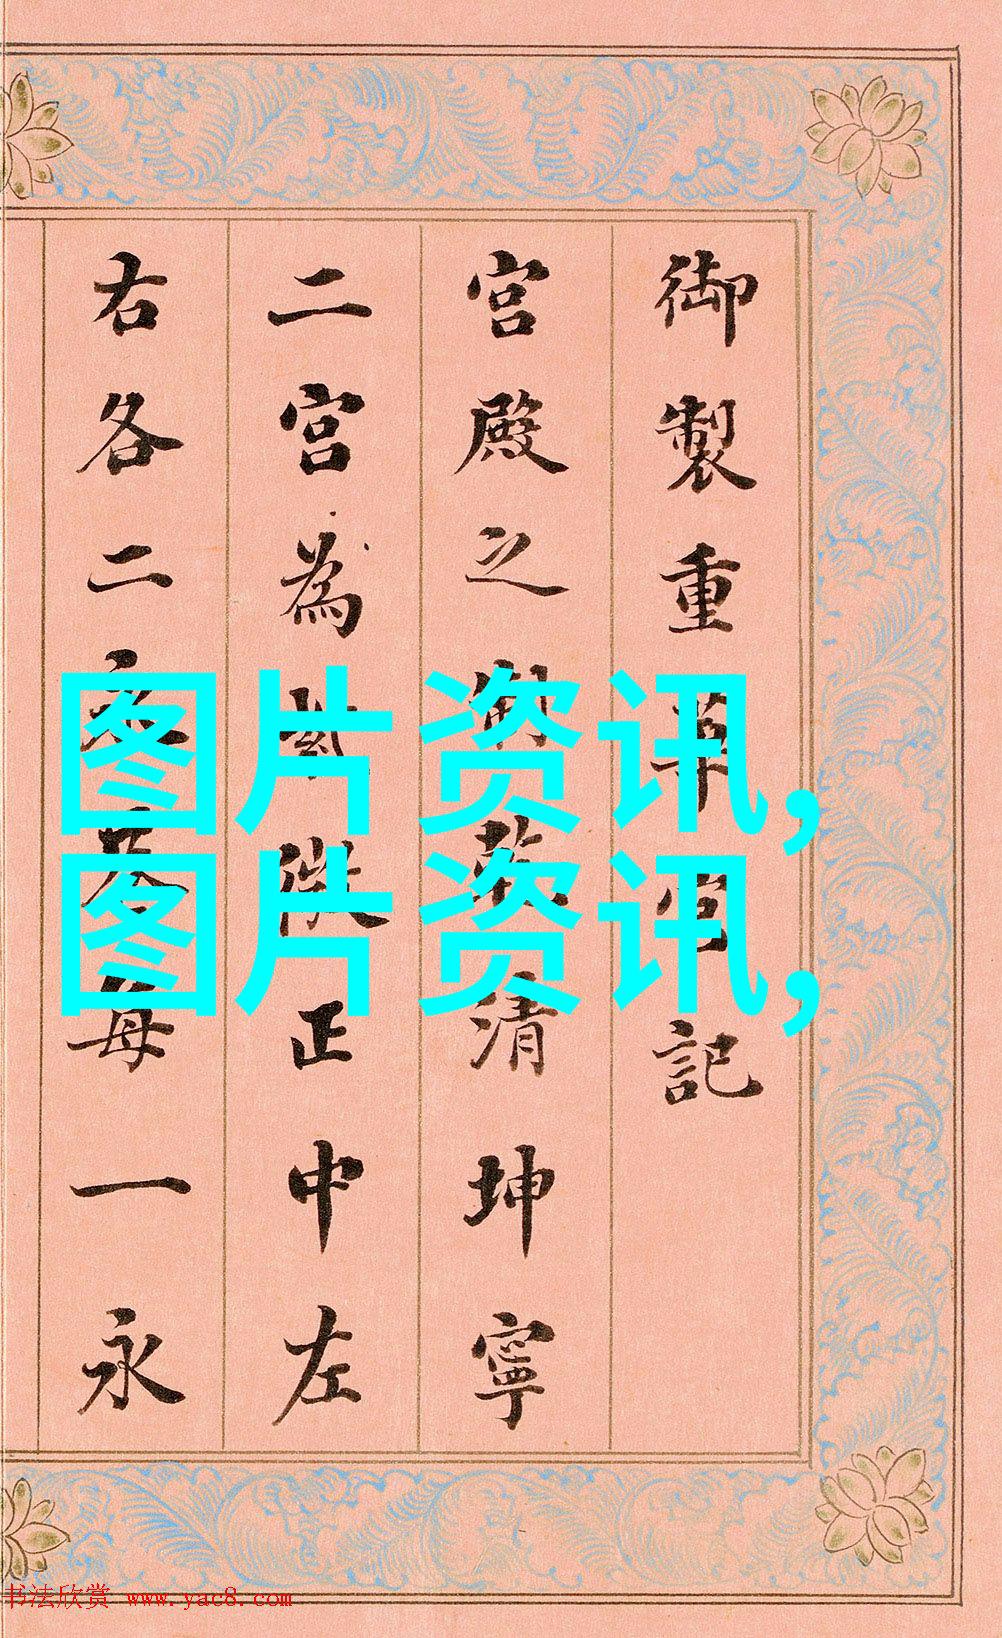 御製重華宮記
宮殿之制乾清坤寧
二宮為紫微正中左
右各二永巷每一永
图片资讯,
图片资讯,
书法欣赏 www.yac8.com